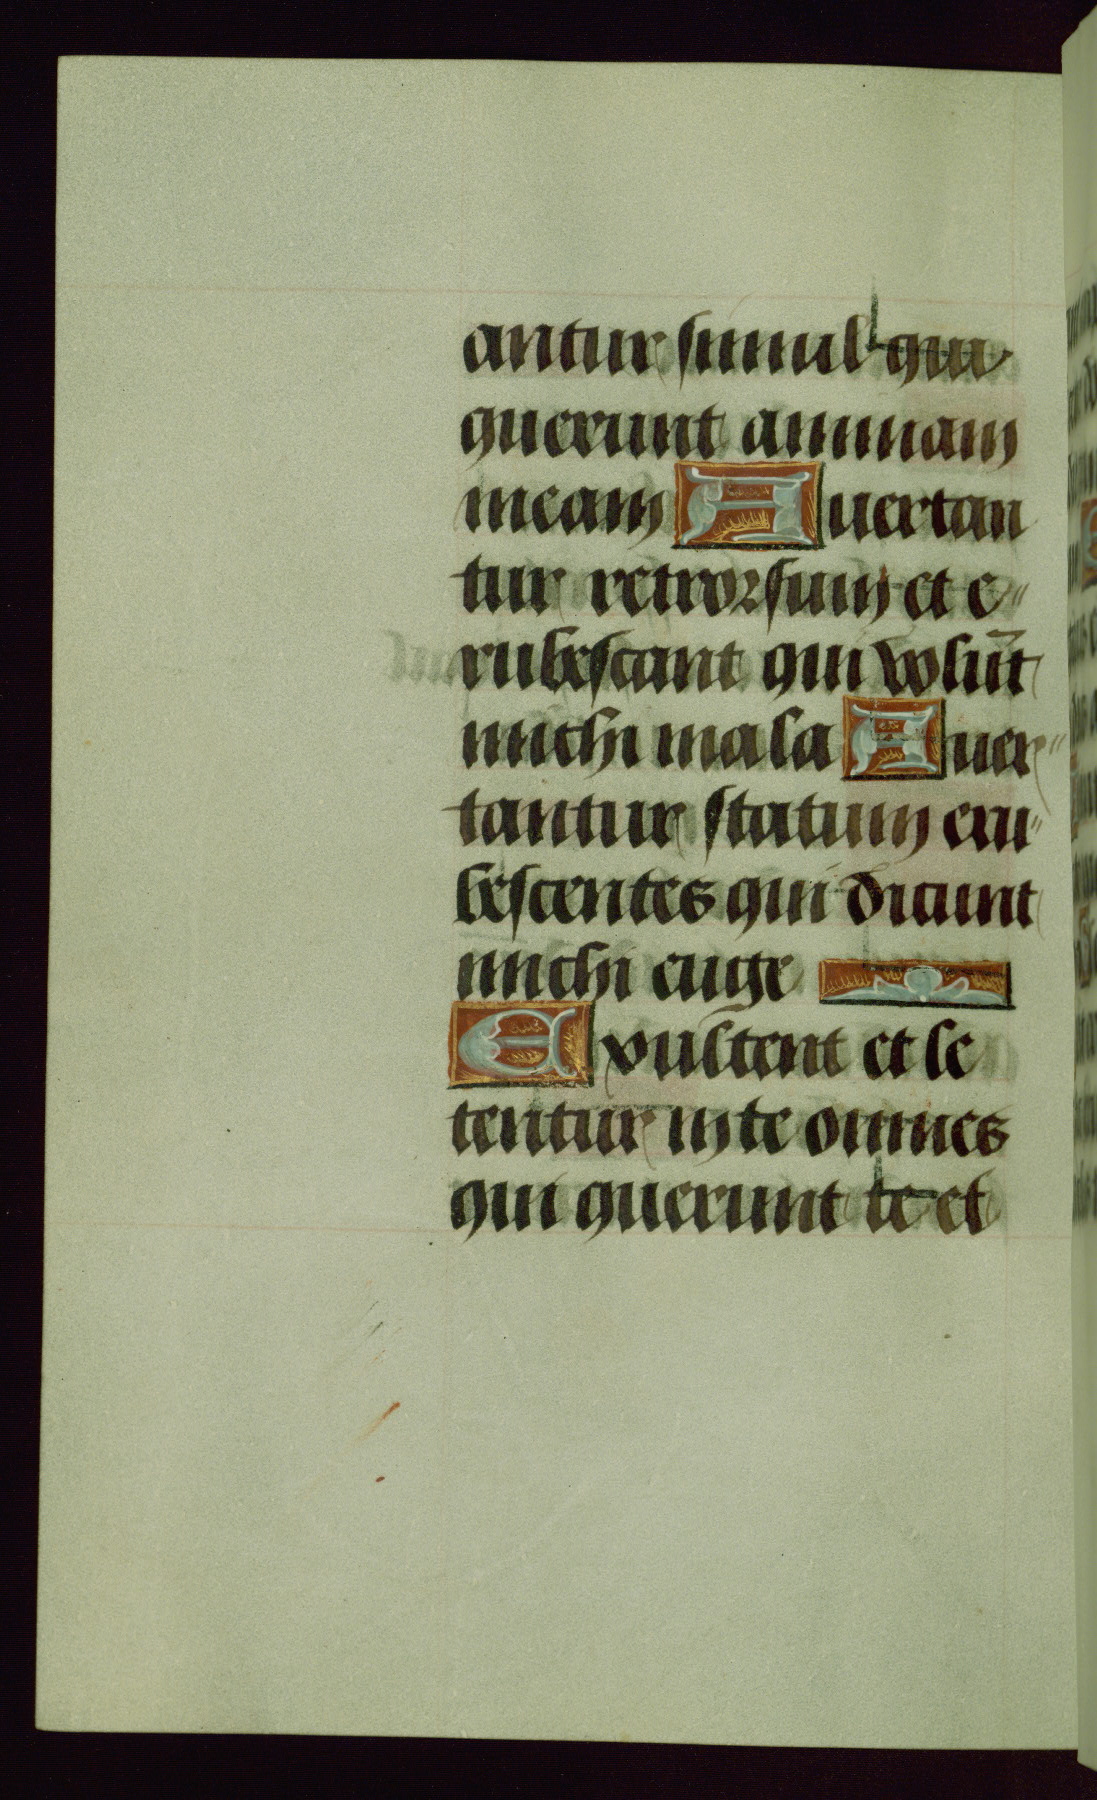 antur simul qui
querunt animam
meam Auertan
tur retrorsum et e"
rubescant qui volũt
michi mala Auer"
tantur statum eru"
bescentes qui dicunt
michi euge
Exultent et le
tentur in te omnes
qui querunt te et